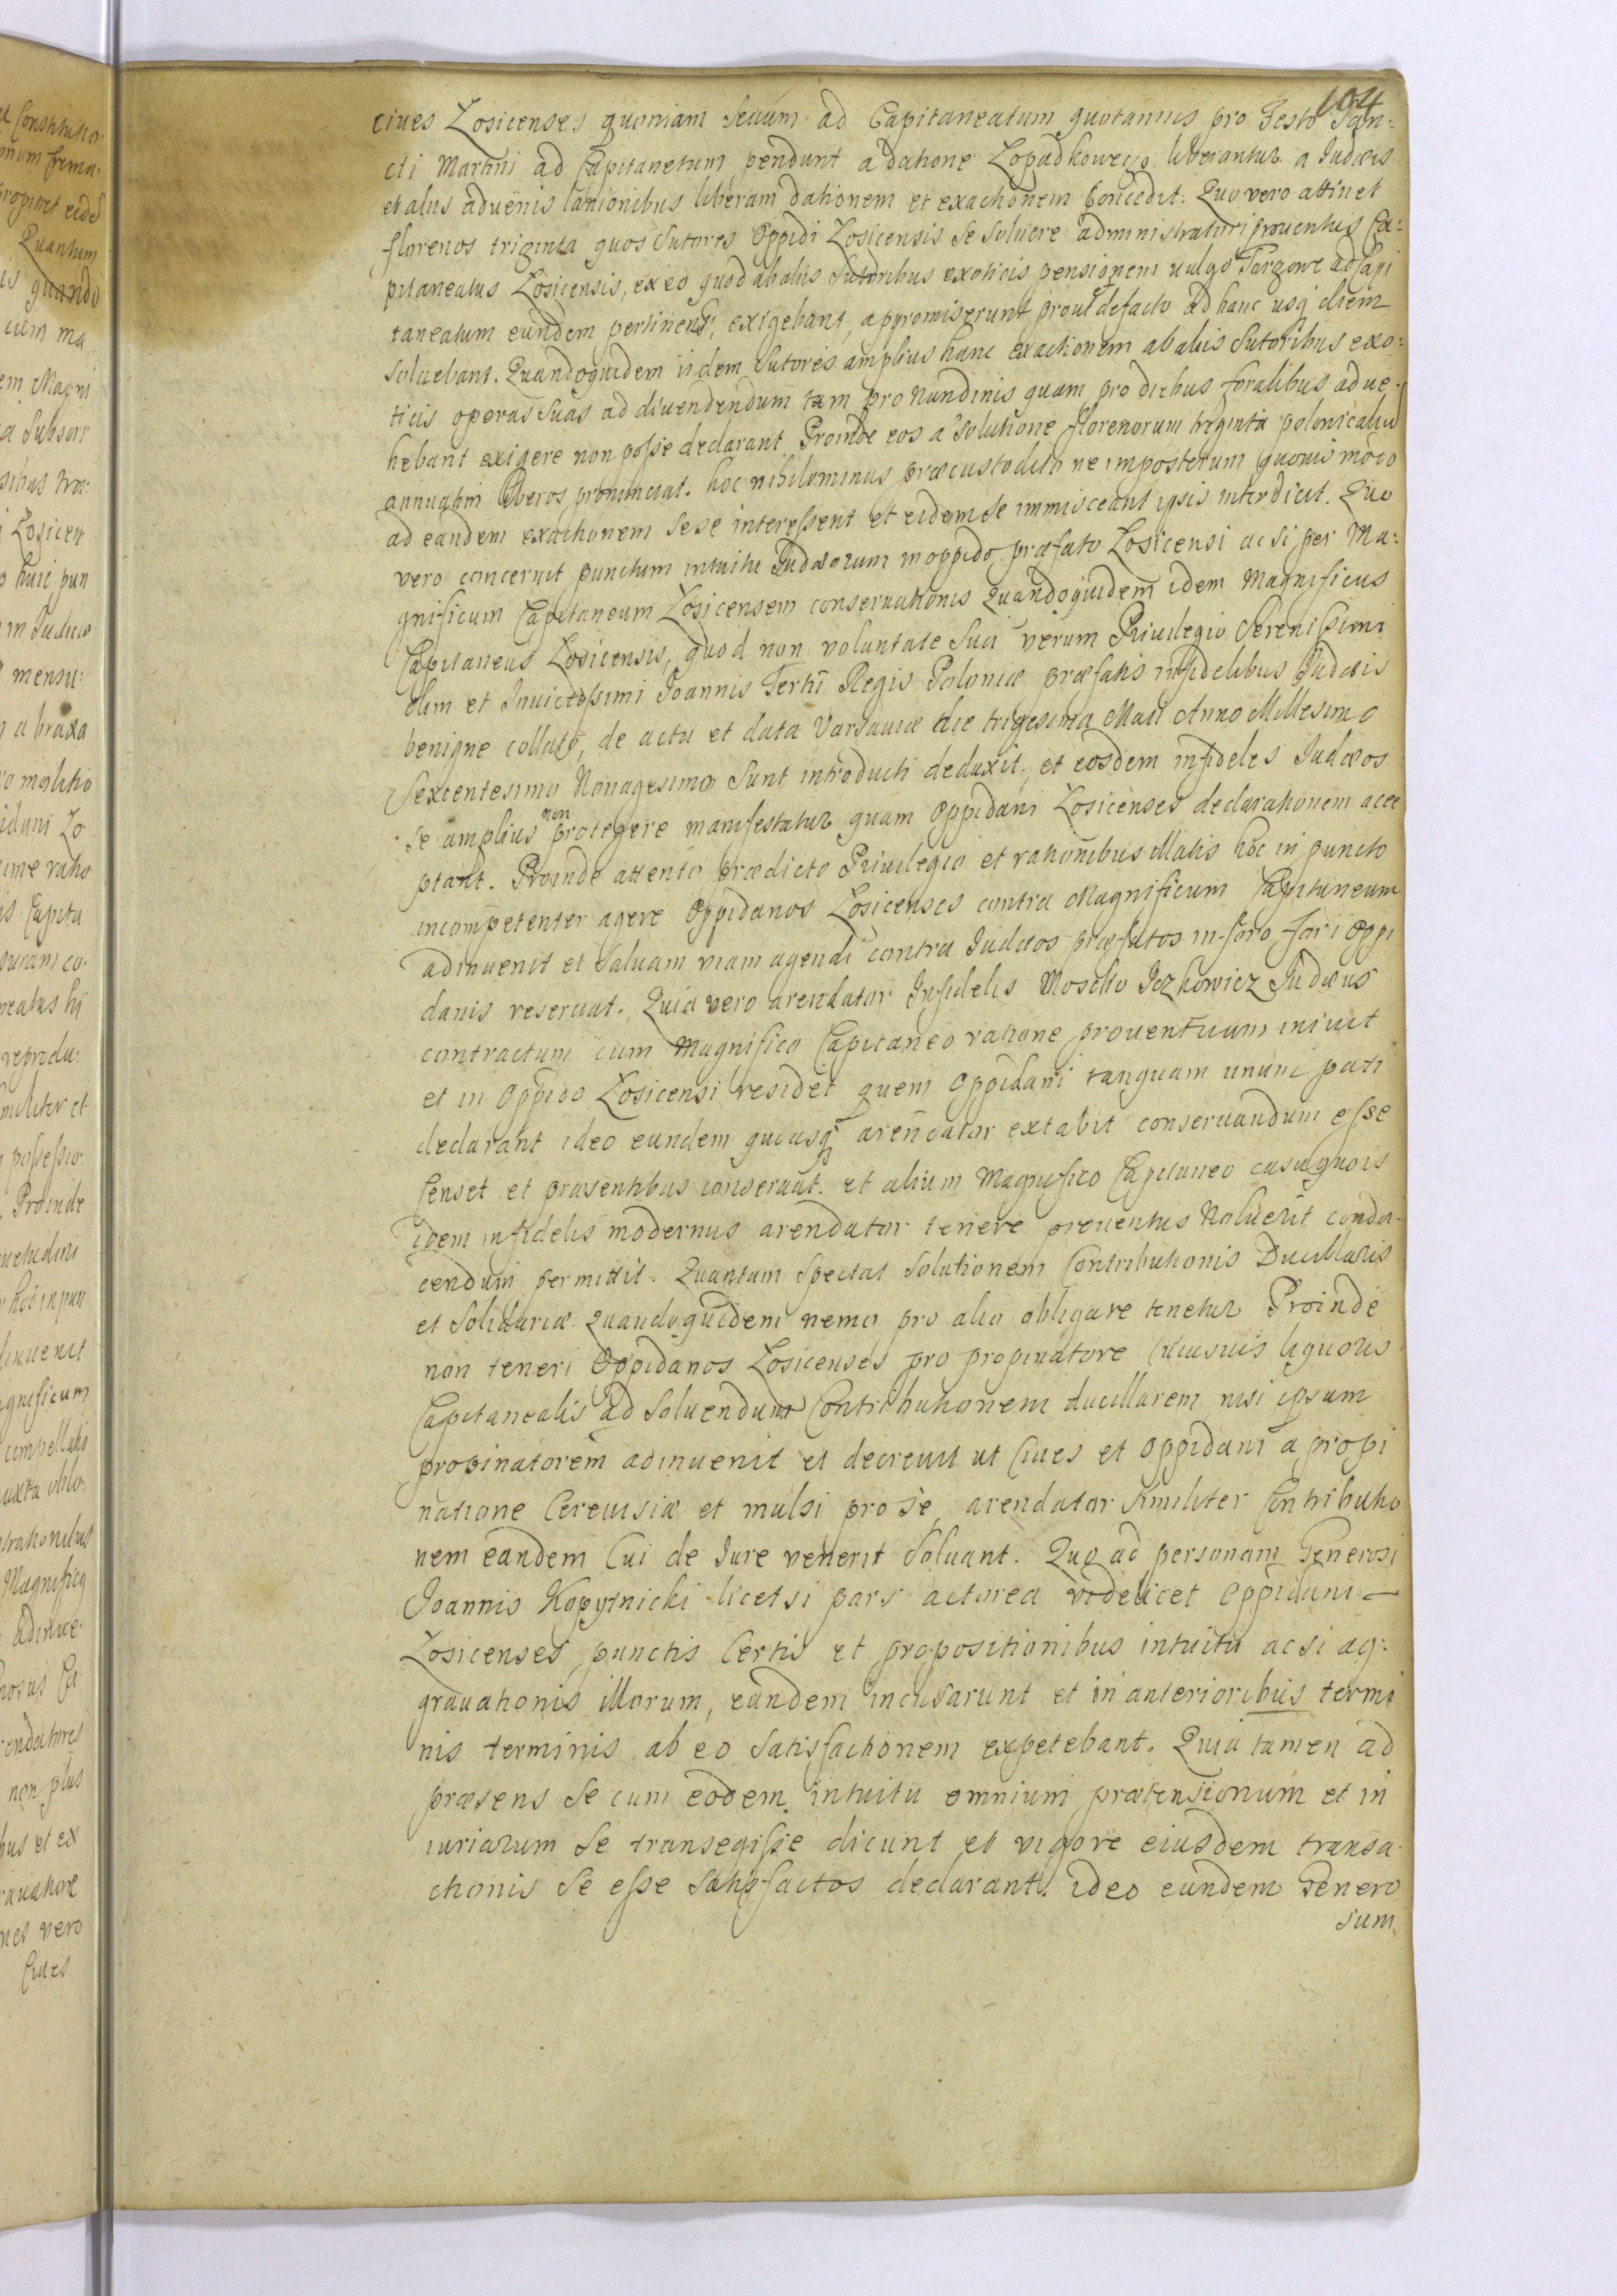 104
ciues Łosicenses quoniam sevum ad Capitaneatum quotannis pro Festo San:
cti Martini ad Capitanetum pendunt a datione Łopadkowego liberantur a Judæis
et aliis advenis lanionibus liberam dationem et exactionem concedit. Quo vero attinet
florenos triginta quos Sutores Oppidi Łosicensis se soluere administratori prouentus Ca:
pitaneatus Łosicensis, ex eo quod ab aliis Sutoribus exoticis pensionem uulgo Targowe ad Capi
taneatum eundem pertinens, exigebant, appromiserunt prout de facto ad hanc usq diem
soluebant. Quandoquidem iidem Sutores amplius hanc exactionem ab aliis Sutoribus exo:
ticis operas suas ad diuendendum tam pro Nundinis quam pro diebus foralibus adue:
hebant exigere non posse declarant Proinde eos a solutione florenorum triginta polonicaliu
annuatim liberos pronunciat. hoc nihilominus præcustodito ne imposterum quouis modo
ad eandem exactionem sese interessent et eidem se immisceant ipsis interdicit. Quo
vero concernit punctum intuitu Judæorum in oppido præfato Łosicensi ac si per Ma:
gnificum Capitaneum Łosicensem conseruationis Quandoquidem idem Magnificus
Capitaneus Łosicensis, quod non voluntate sua verum Priuilegio Serenissimi
olim et Inuictissimi Joannis Tertii Regis Poloniæ præfatis infidelibus Judæis
benigne collato, de actu et data Varsauiæ die trigesima Maii Anno Millesimo
Sexcentesimo Nonagesimo sunt introducti deduxit, et eosdem infideles Judæos
se amplius non protegere manifestatur quam oppidani Łosicenses declarationem acce
ptant. Proinde attento prædicto Priuilegio et rationibus illatis hoc in puncto
incompetenter agere Oppidanos Łosicenses contra Magnificum Capitaneum
adinuenit et saluam viam agendi contra Judæos præfatos in foro fori Oppi
danis reseruat. Quia vero arendator Infidelis Moscho Jczkowicz Judæus
contractum cum Magnifico Capitaneo ratione prouentuum iniuit
et in Oppido Łosicensi residet quem Oppidani tanquam unum pati
declarant ideo eundem quousq arendator extabit conseruandum esse
Censet et præsentibus conseruat. et alium Magnifico Capitaneo casu quo is
idem infidelis modernus arendator tenere prouentus Noluerit condu
cendum permittit. Quantum spectat solutionem Contributionis Ducillaris
et Solidariæ Quandoquidem nemo pro alio obligare tenetur Proinde
non teneri Oppidanos Łosicenses pro propinatore cuiusuis liquoris
Capitanealis ad soluendum Contributionem ducillarem nisi ipsum
propinatorem adinuenit et decreuit ut Ciues et Oppidani a propi
natione Cereuisiæ et mulsi pro se, arendator similiter Contributio
nem eandem Cui de Jure venerit soluant. Quo ad personam Generosi
Joannis Kopytnicki licet si pars actorea videlicet Oppidani
Łosicenses, punctis Certis et propositionibus intuitu ac si ag:
grauationis illorum, eundem incusarunt et in anterioribus termi
nis terminis ab eo satisfactionem expetebant. Quia tamen ad
præsens se cum eodem intuitu omnium prætensionum et in
iuriarum se transegisse dicunt et vigore eiusdem transa
ctionis se esse satisfactos declarant. ideo eundem Genero
sum